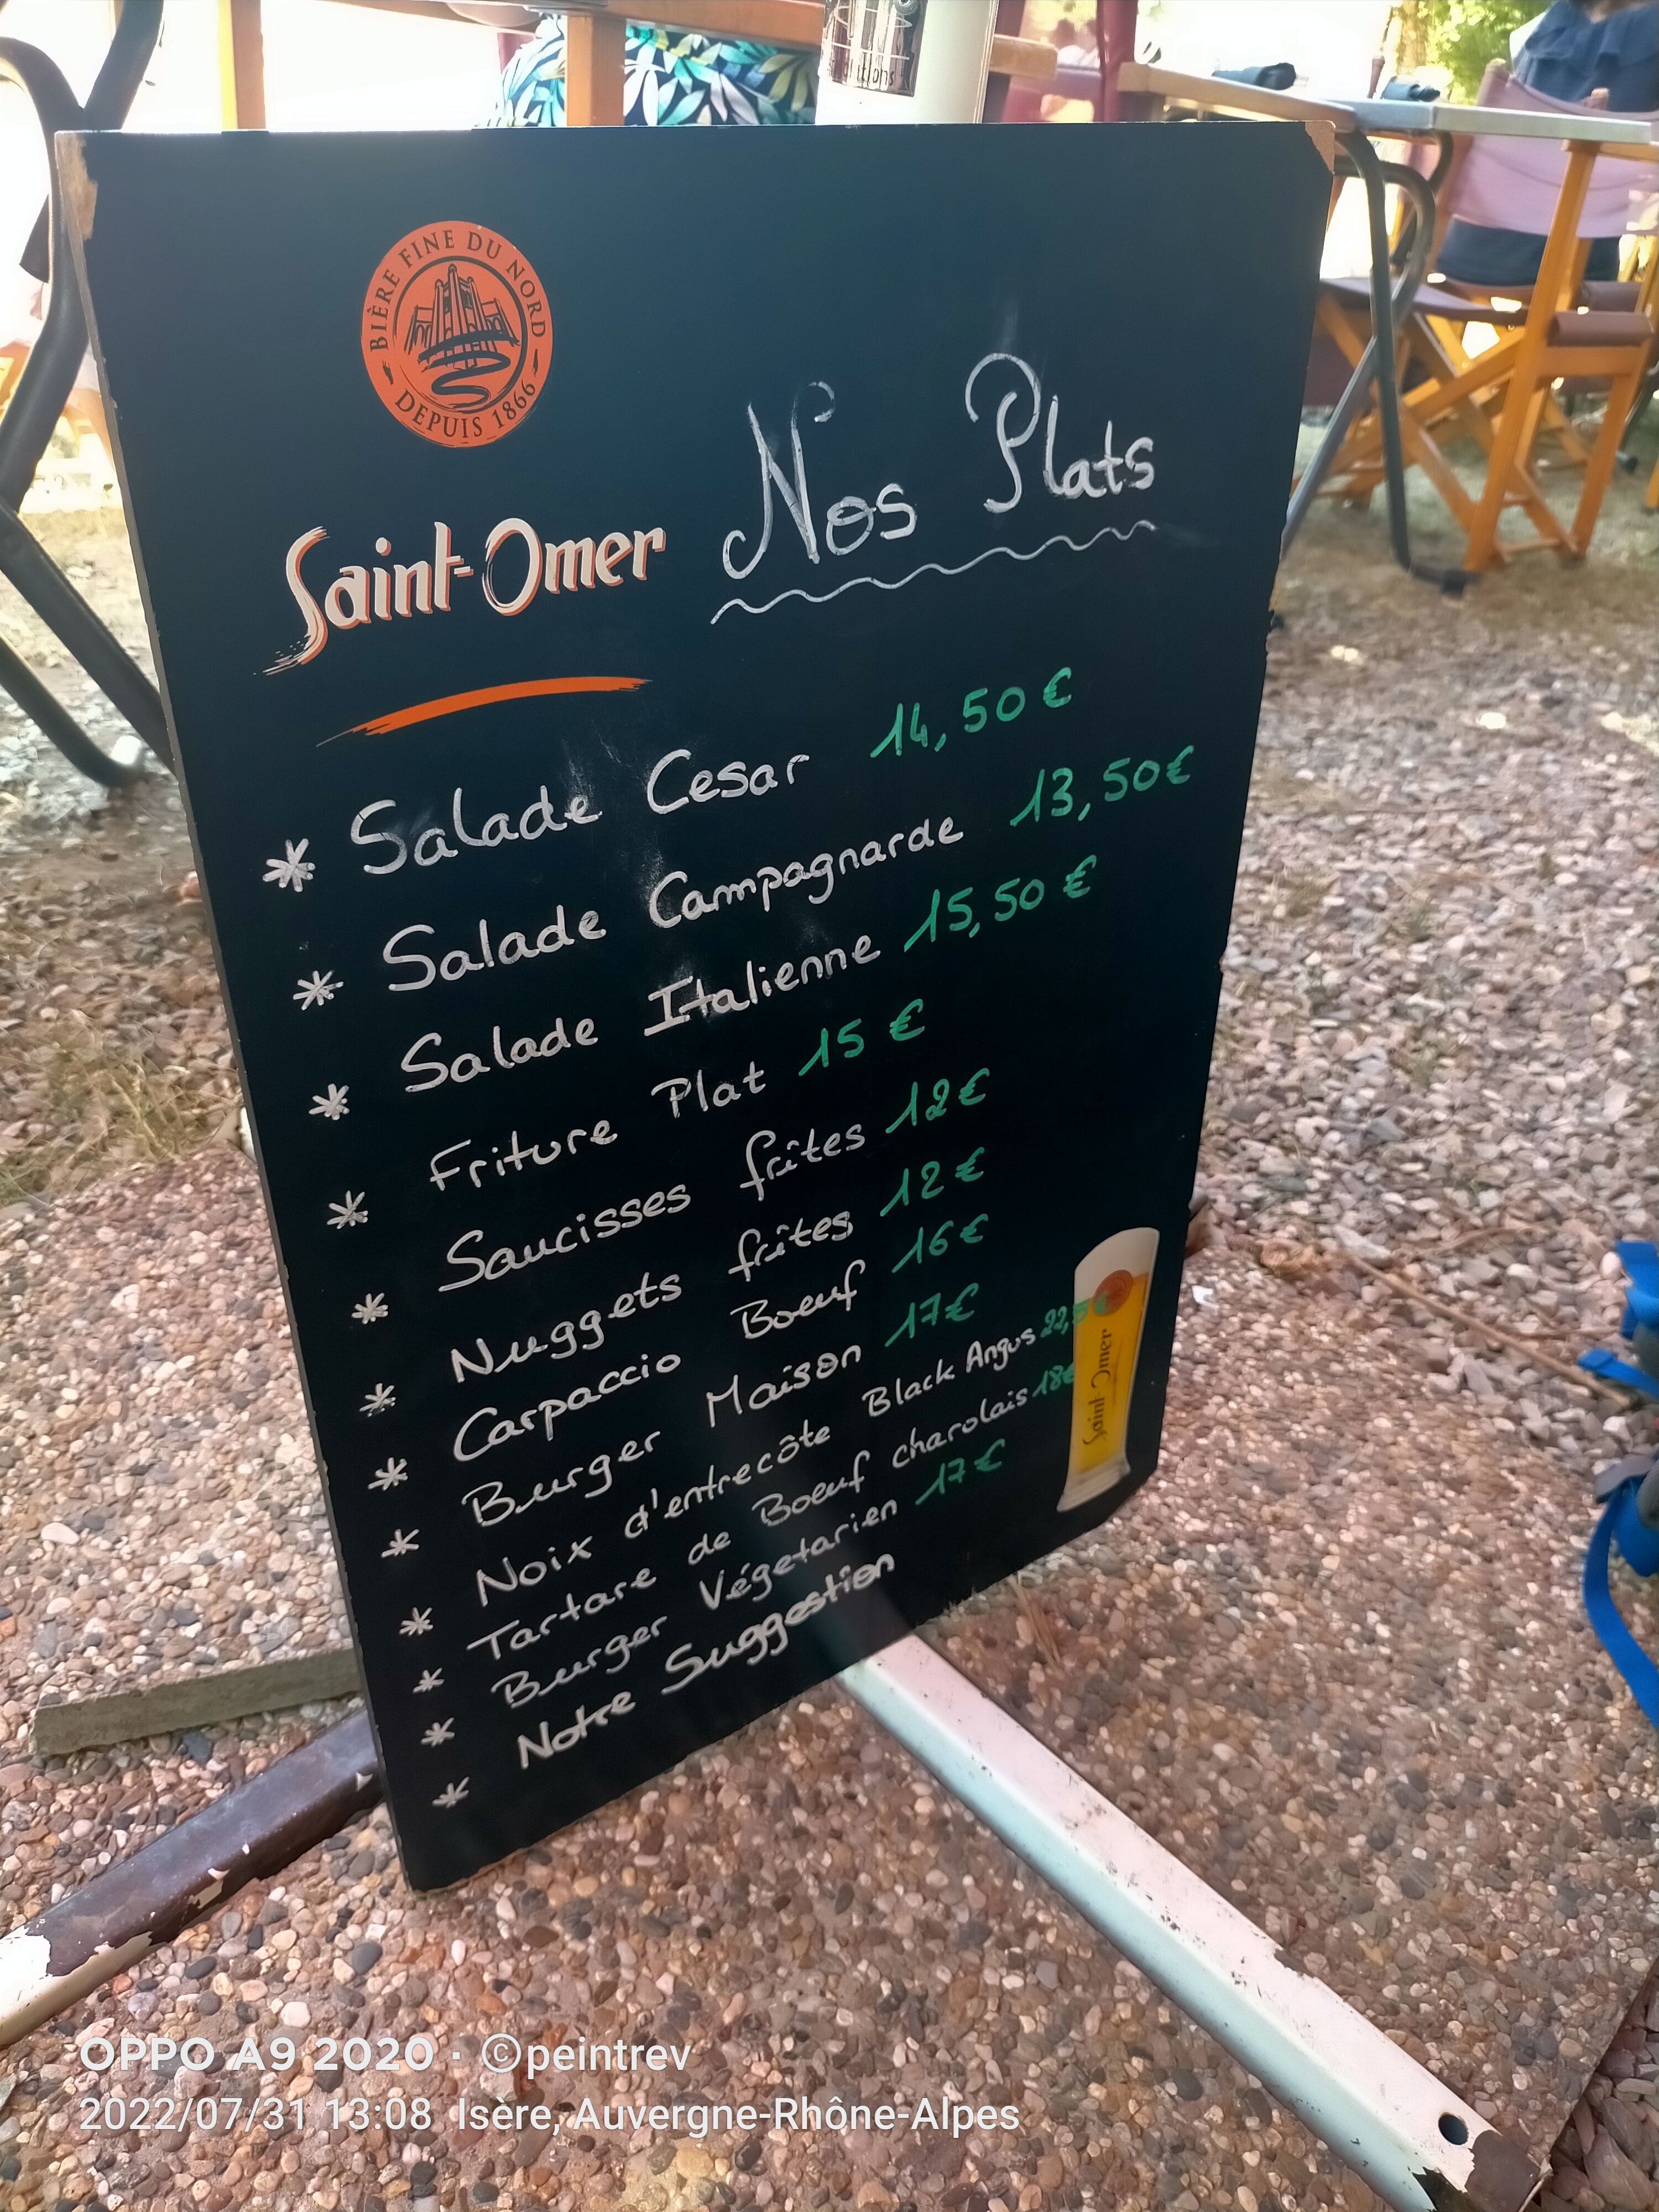 BIÈRE FINE DU NORD
DEPUIS 1866
Saint-Omer
Nos Plats
* Salade Cesar 14,50 €
* Salade Campagnarde 13,50 €
* Salade Italienne 15,50 €
* Friture Plat 15 €
* Saucisses frîtes 12 €
* Nuggets frîtes 12 €
* Carpaccio Boeuf 16 €
* Burger Maison 17 €
* Noix d'entrecôte Black Angus 22,5 €
* Tartare de Boeuf charolais 18€
* Burger Végetarien 17 €
* Notre Suggestion
Saint-Omer
OPPO A9 2020 · ©peintrev
2022/07/31 13:08 Isère, Auvergne-Rhône-Alpes